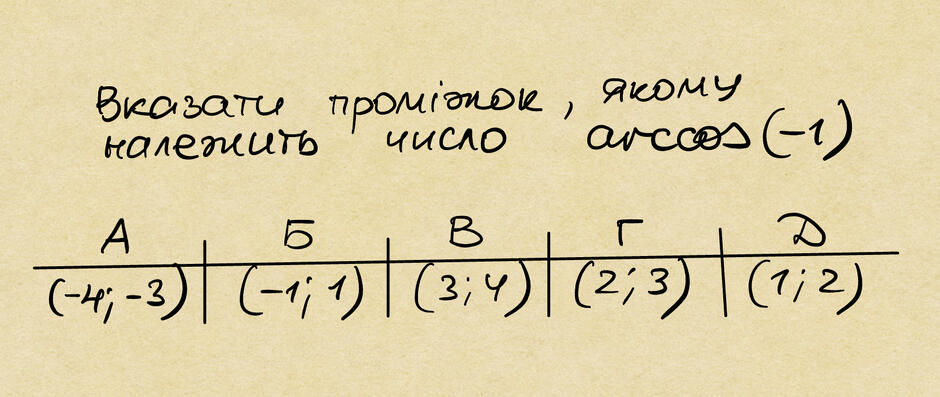 Вказати проміжок, якому
належить число arccos(-1)
А Б В Г Д
(-4;-3) (-1;1) (3;4) (2;3) (1;2)